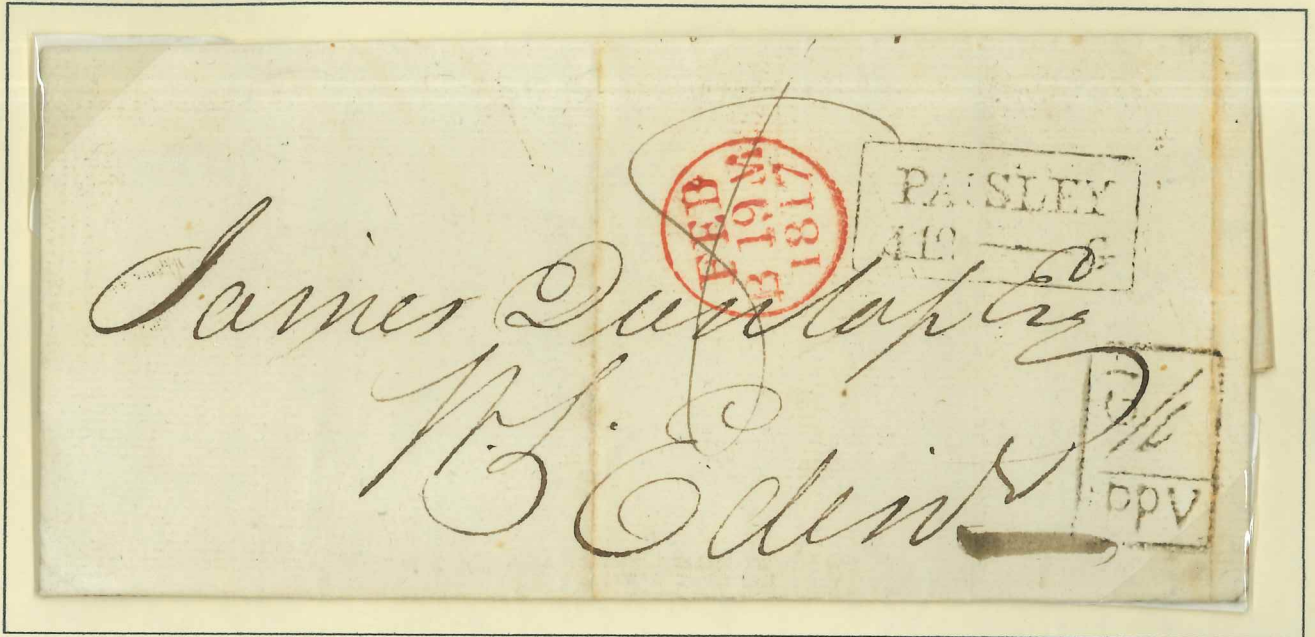 FEB
B 19 M
1817
PAISLEY
James Dunlop Esq
W.S. Edinr